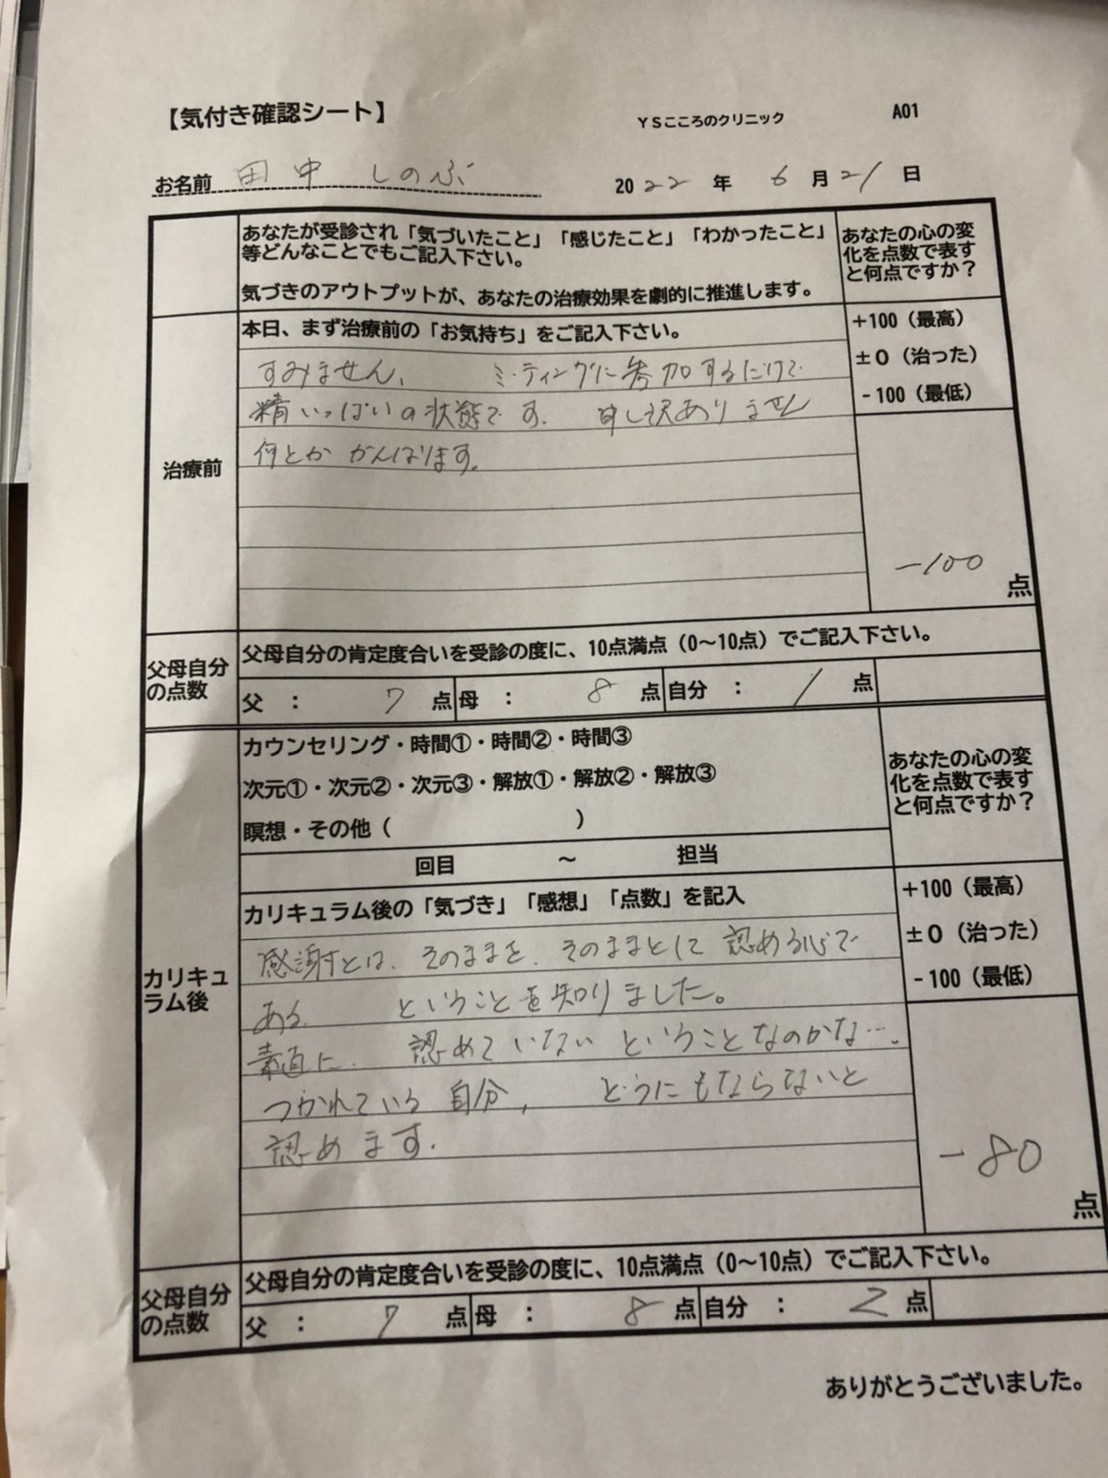 【気付き確認シート】 YSこころのクリニック A01
お名前 田中 しのぶ 2022年 6月21日
あなたが受診され「気づいたこと」「感じたこと」「わかったこと」
等どんなことでもご記入下さい。
気づきのアウトプットが、あなたの治療効果を劇的に推進します。
あなたの心の変
化を点数で表す
と何点ですか？
治療前
本日、まず治療前の「お気持ち」をご記入下さい。
すみません、 ミーティングに参加するだけで
精いっぱいの状態です. 申し訳ありません
何とか がんばります。
+100（最高）
±0（治った）
-100（最低）
-100 点
父母自分
の点数
父母自分の肯定度合いを受診の度に、10点満点（0～10点）でご記入下さい。
父 ： 7 点 母 ： 8 点 自分 ： 1 点
カリキュ
ラム後
カウンセリング・時間①・時間②・時間③
次元①・次元②・次元③・解放①・解放②・解放③
瞑想・その他（ ）
回目 ～ 担当
あなたの心の変
化を点数で表す
と何点ですか？
カリキュラム後の「気づき」「感想」「点数」を記入
感謝とは、そのままを、そのままとして 認める心で
ある. ということを知りました。
素直に. 認めていない ということなのかな…。
つかれている 自分, どうにもならないと
認めます.
+100（最高）
±0（治った）
-100（最低）
-80 点
父母自分
の点数
父母自分の肯定度合いを受診の度に、10点満点（0～10点）でご記入下さい。
父 ： 7 点 母 ： 8 点 自分 ： 2 点
ありがとうございました。